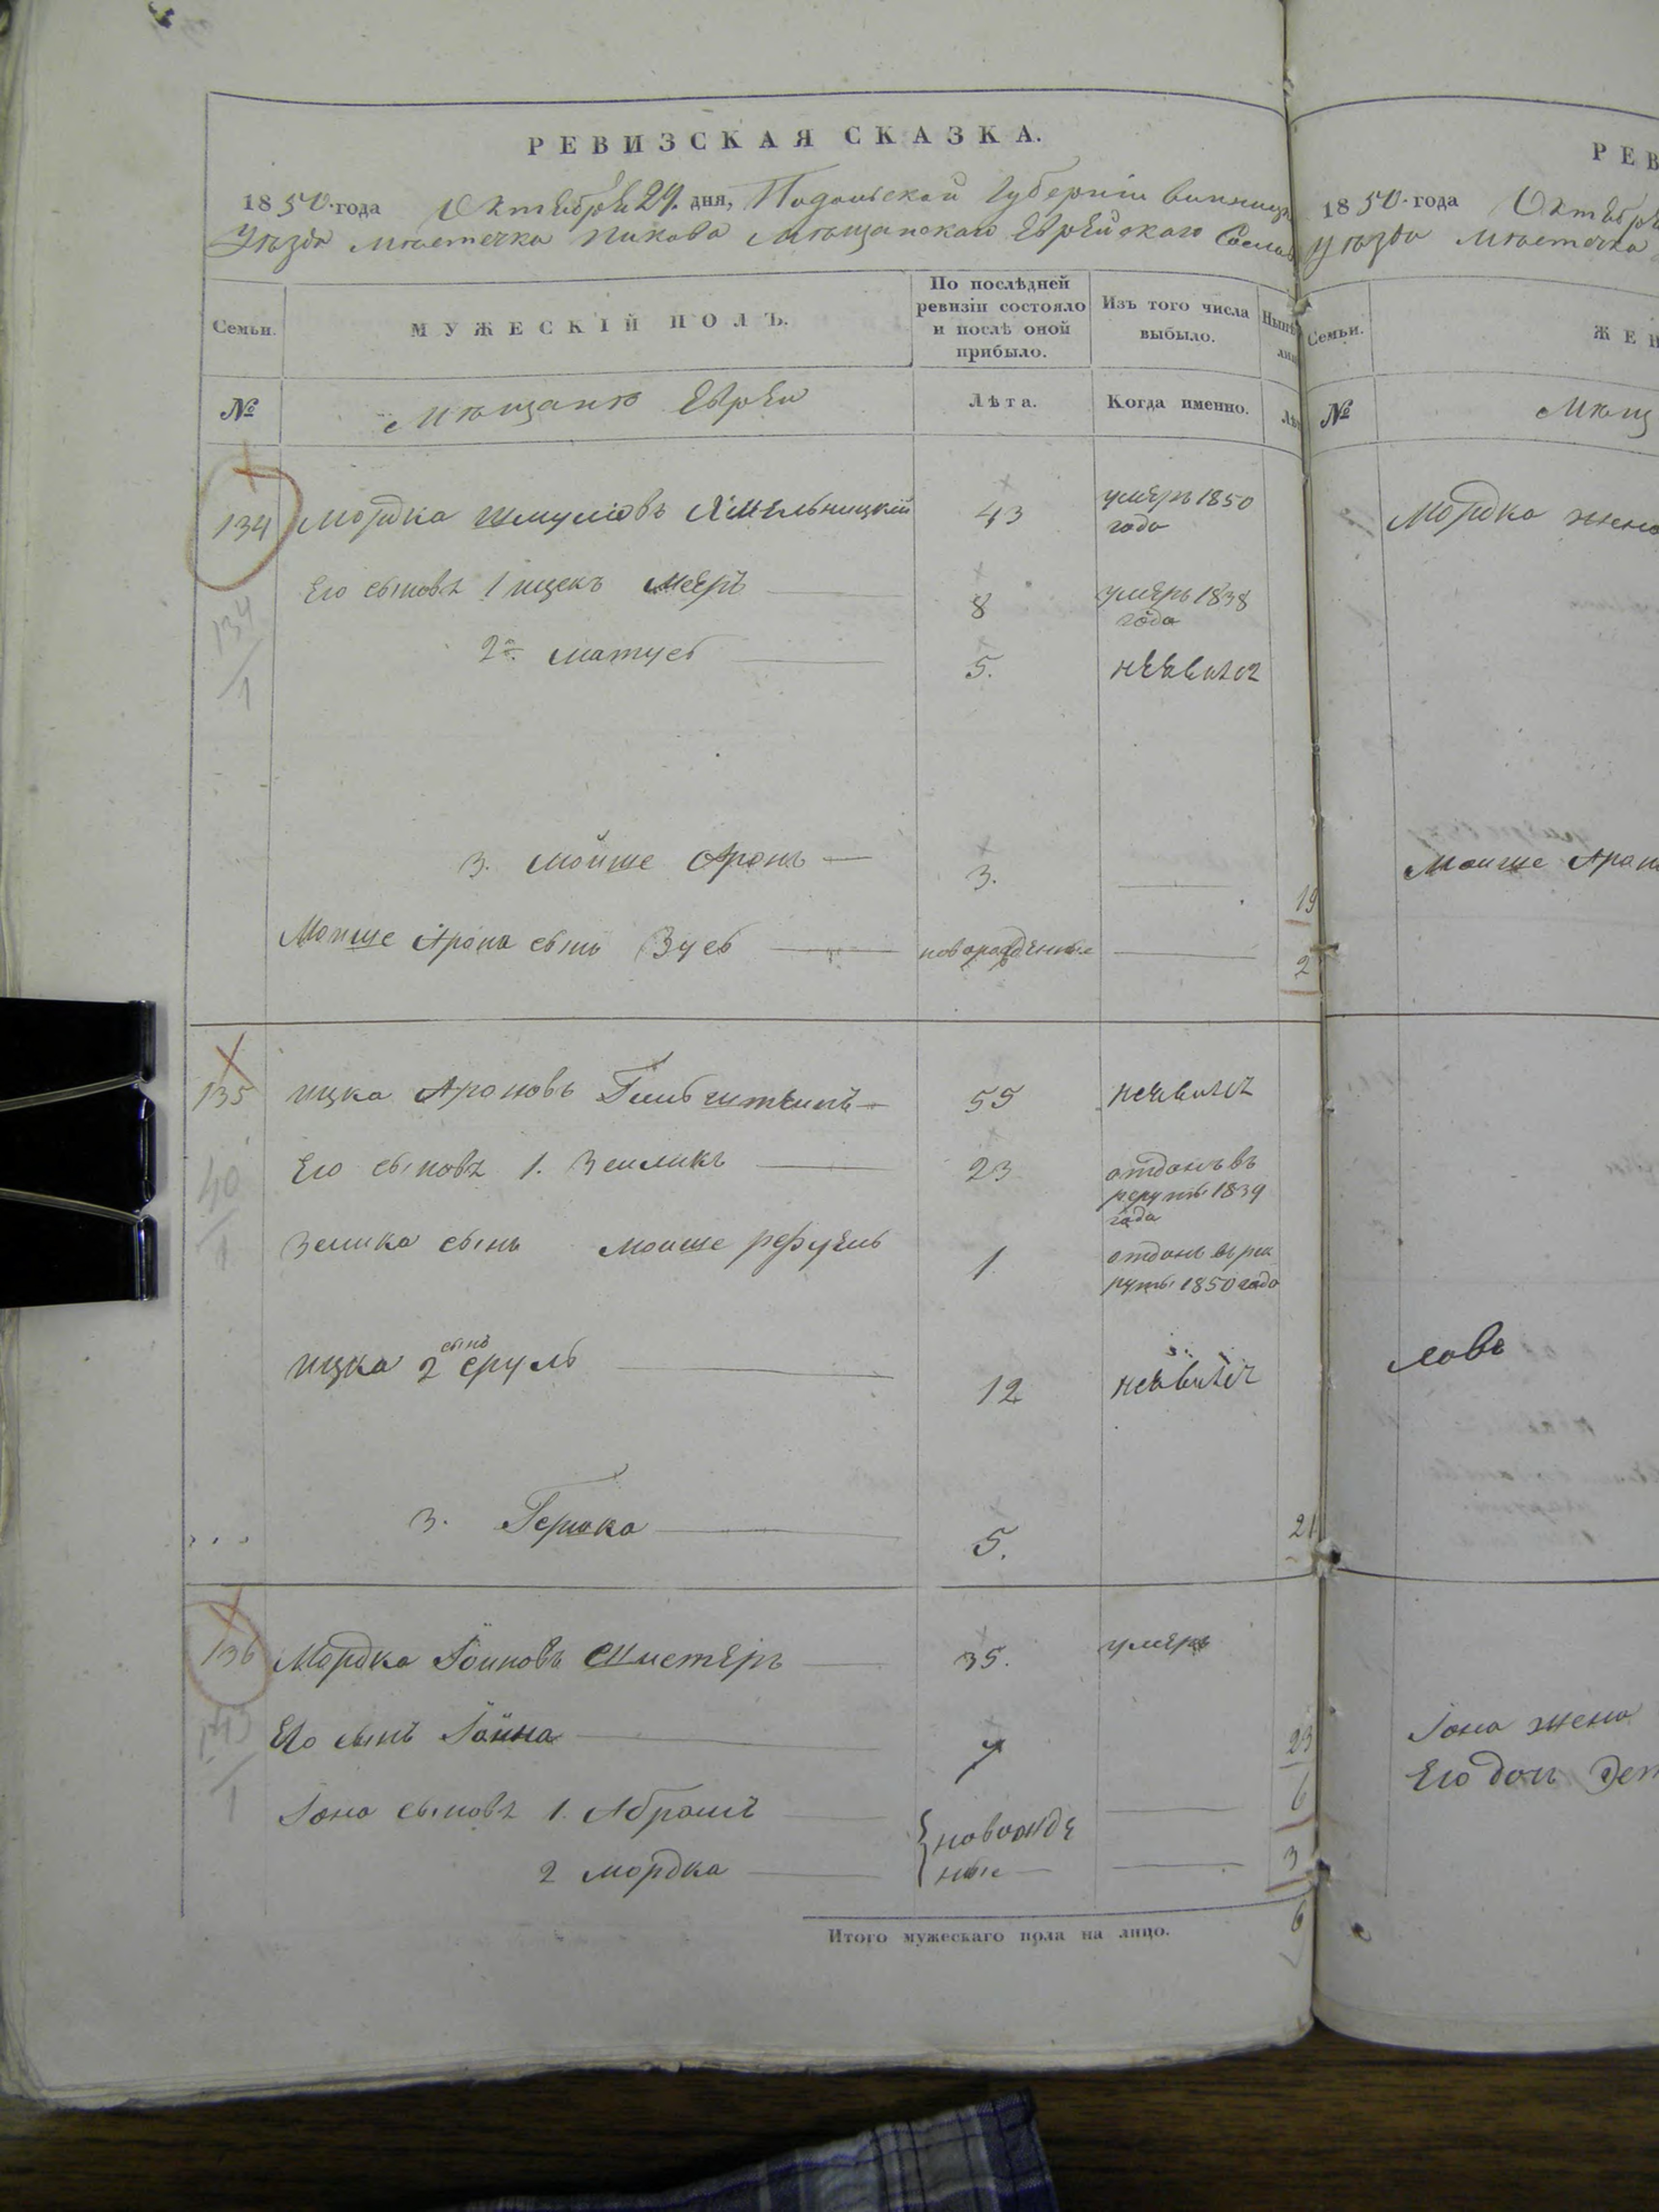 РЕВИЗСКАЯ СКАЗКА.
1850 года Октября 29. дня, Подольской Губернии Винницк
Уезда местечка Пикова Мѣщанскаго Еврейскаго
Семьи.
МУЖЕСКІЙ ПОЛЪ.
По послѣдней
ревизіи состояло
и послѣ оной
прибыло.
Изъ того числа
выбыло.
№
Мѣщане Евреи
Лѣта.
Когда именно.
134 Мордка Шмулiовъ Хмельницкiй 43 умеръ 1850
года
Его сыновя 1 ицекъ Мееръ 8 умеръ 1838
года
134
1
2й. Матусъ 5. неявился
3. Мойше Аронъ 3. 19
Мойше Арона сынъ Зусь новорожденные 2
135 ицка Ароновъ 55 неявился
Его сыновя 1. Зеиликъ 23 отданъ въ
рекруты 1839
года
40
1
Зелика сынъ Моише рефуель 1 отданъ въ рек
руты 1850 года
сынъ
ицка 2 сруль 12 неявился
3. Гершко 5. 21
136 Мордка Іоиновъ Шистеръ 35. умеръ
Его сынъ Іойна 7 23
6
143
1
Іона сыновя 1. Абрамъ { новорожде
2 Мордка ные 3
Итого мужескаго пола на лицо. 6
РЕВ
1850 года Октября
Уѣзда Местечка
Семьи.
ЖЕН
№
Мѣщ
Мордка жена
Моише Арон
Іона жена
Его доч